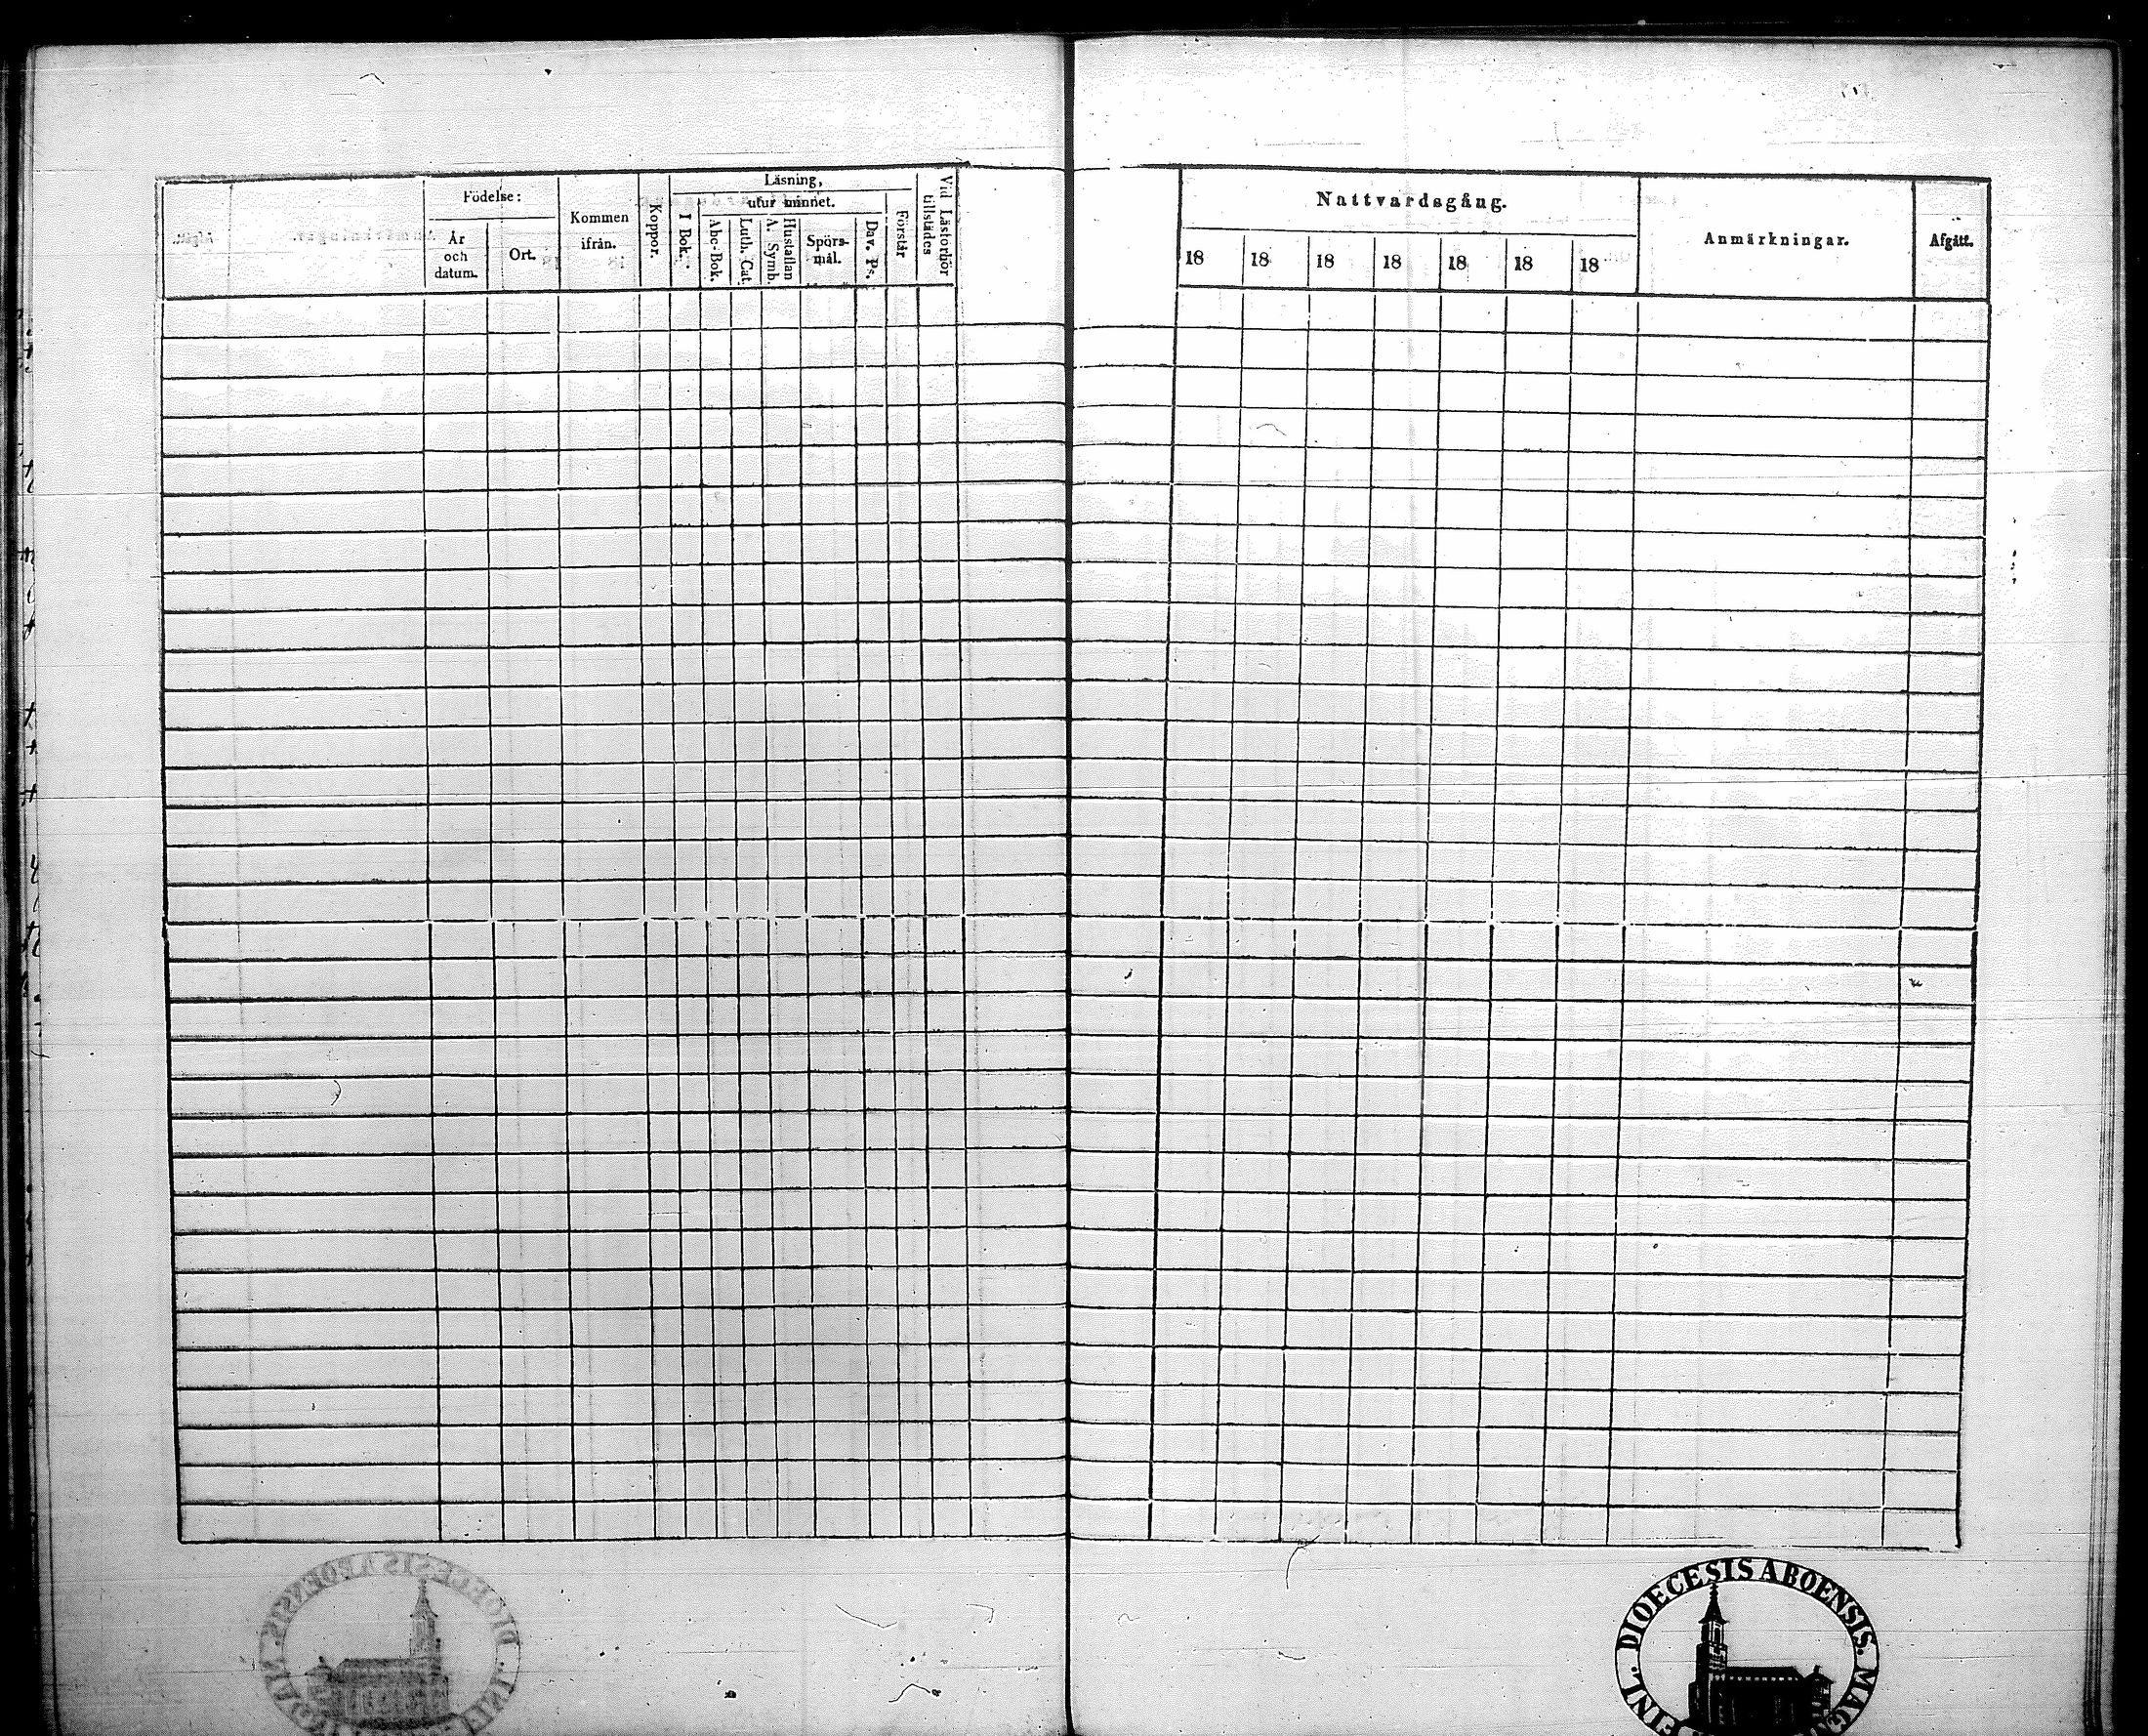 Födelse:
År och datum.
Ort.
Kommen ifrån.
Koppor.
Läsning,
I Bok.
utur minnet.
Abc-Bok.
Luth. Cat.
A. Symb.
Hustaflan
Spörs-
mål.
Dav. Ps.
Förstår
Vid Läsförhör
tillstädes
Nattvardsgång.
18 18 18 18 18 18 18
Anmärkningar.
Afgått.
FINL. DIOECESIS ABOENSIS.